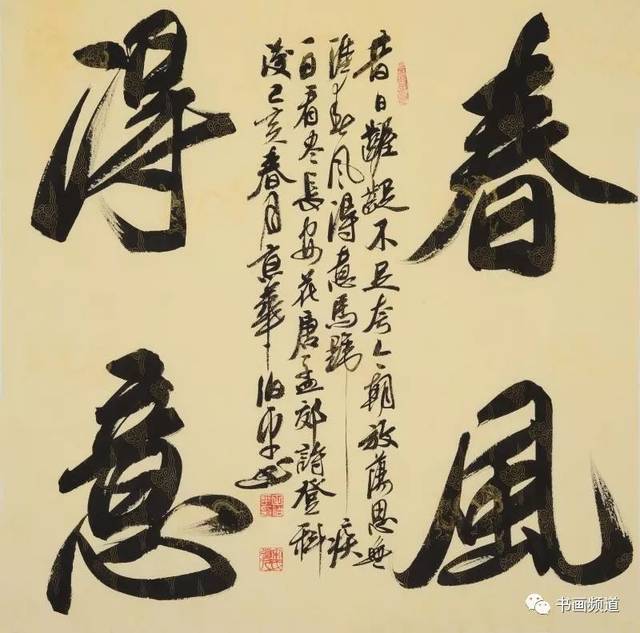 春風
昔日齷齪不足夸今朝放蕩思無
涯春风得意馬蹄疾
一日看尽長安花唐孟郊詩登科
後己亥春月京華伯平书
得意
书画频道